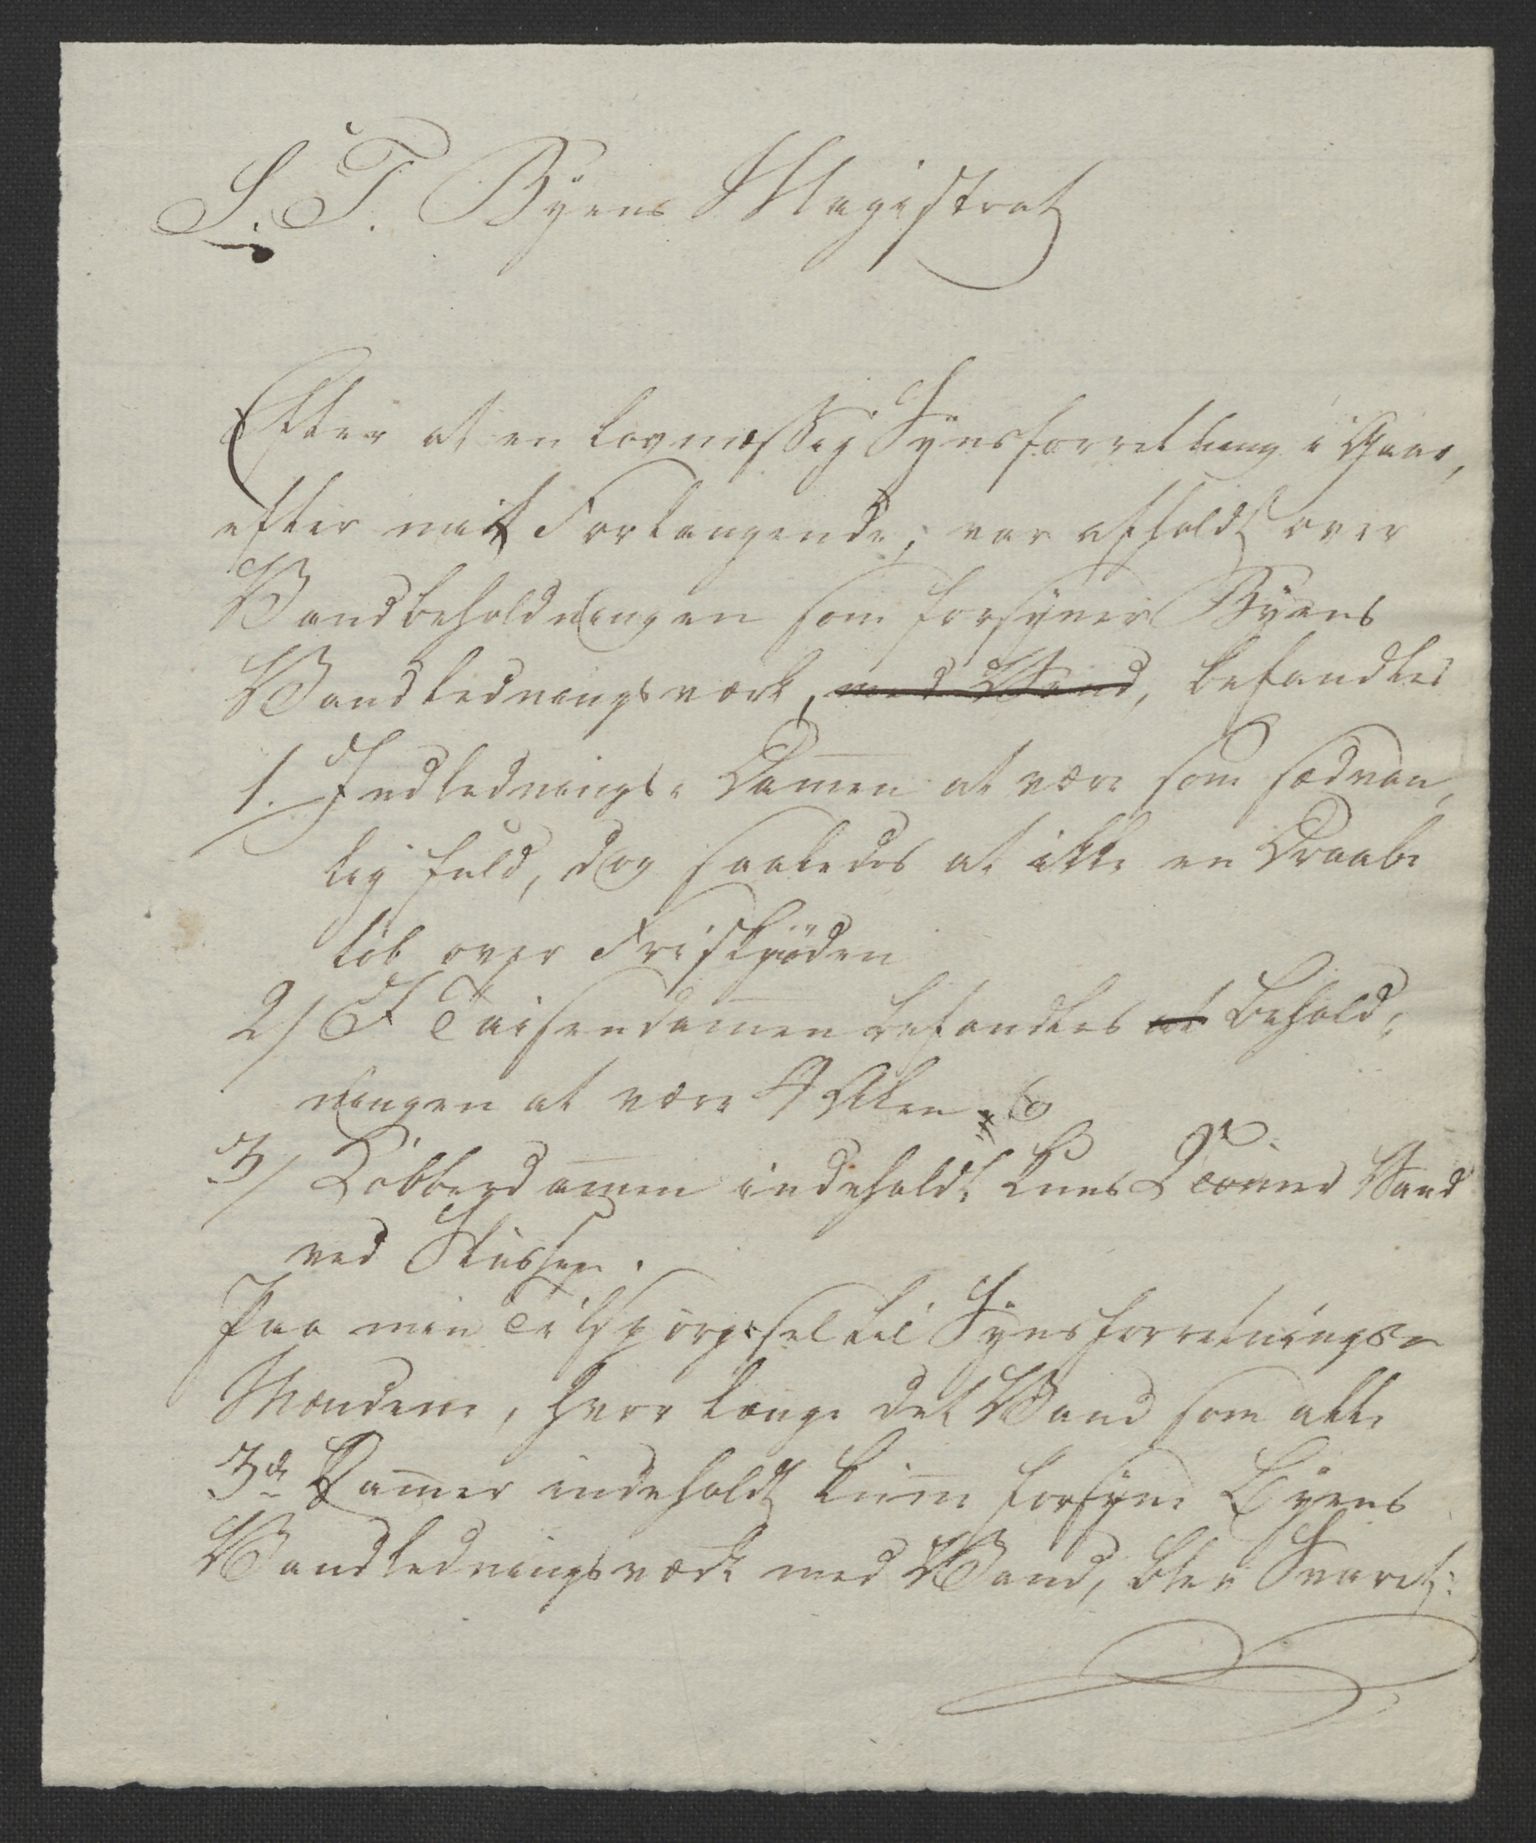 S. T. Byens Magistrat
Efter at en lovmæssig Synsforretning i Gaar,
efter mit Forlangende, var afholdt over
Vandbeholdningen som forsyner Byens
Vandledningsværk, med Vand, befandtes
1. Indlednings-Dammen at være som sædvan-
lig fuld, dog saaledes at ikke en Draabe
løb over Friskjöden
2/ I Taisendammen befandtes at Behold-
ningen at være 4 Alen
3/ Kobberdammen indeholdt kuns 2 Tommer Vand
ved Slussen.
Paa min Tilspørgsel til Synsforretnings-
Mændene, hvor længe det Vand som alle
3de Dammer indeholdt kunne forsyne Byens
Vandledningsværk med Vand, blev Svaret: